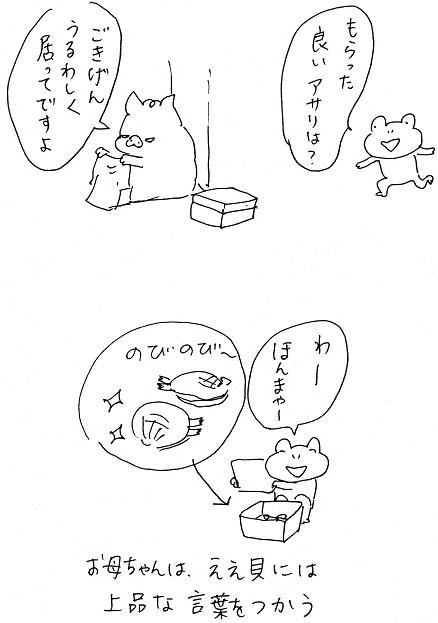 もらった
良いアサリは?
ごきげん
うるわしく
居ってですよ
わー
ほんまやー
のびのび〜
お母ちゃんは、ええ貝には
上品な言葉をつかう